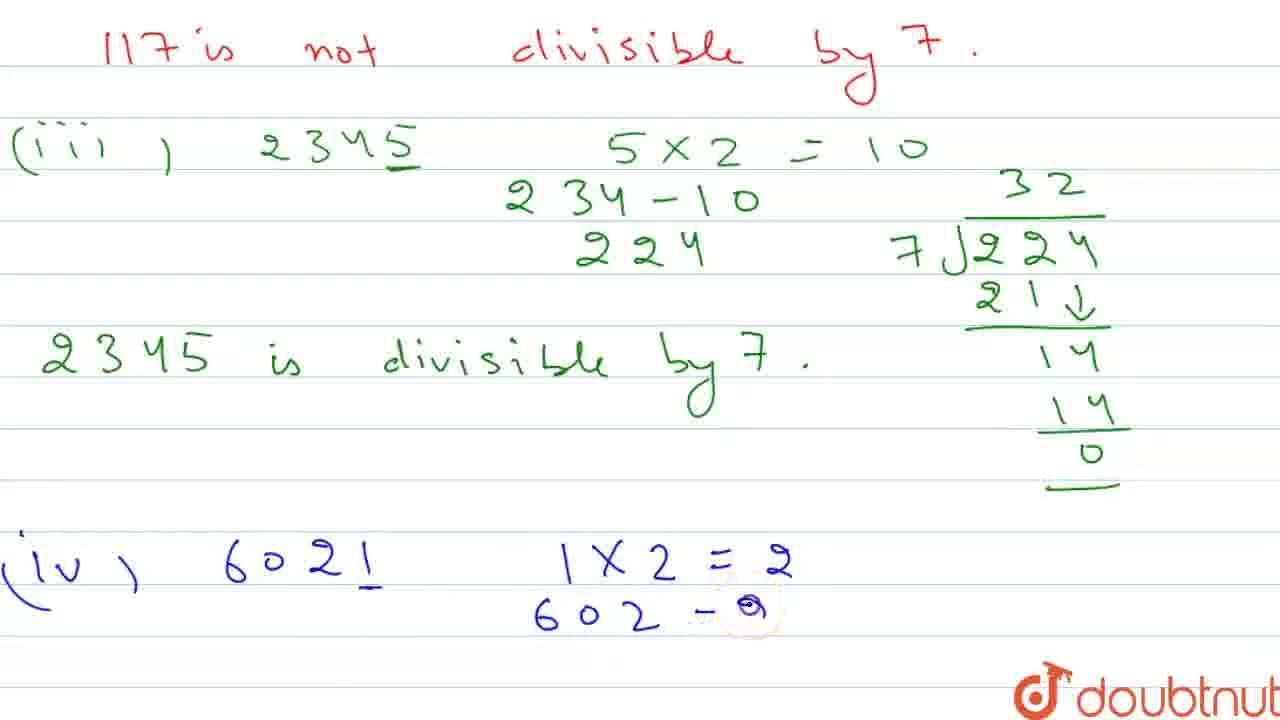 117 is not divisible by 7.
(iii) 2345 5 × 2 = 10
234 - 10
224
32
7)224
21↓
14
14
0
2345 is divisible by 7.
(iv) 6021 1 × 2 = 2
602 - 2
doubtnut